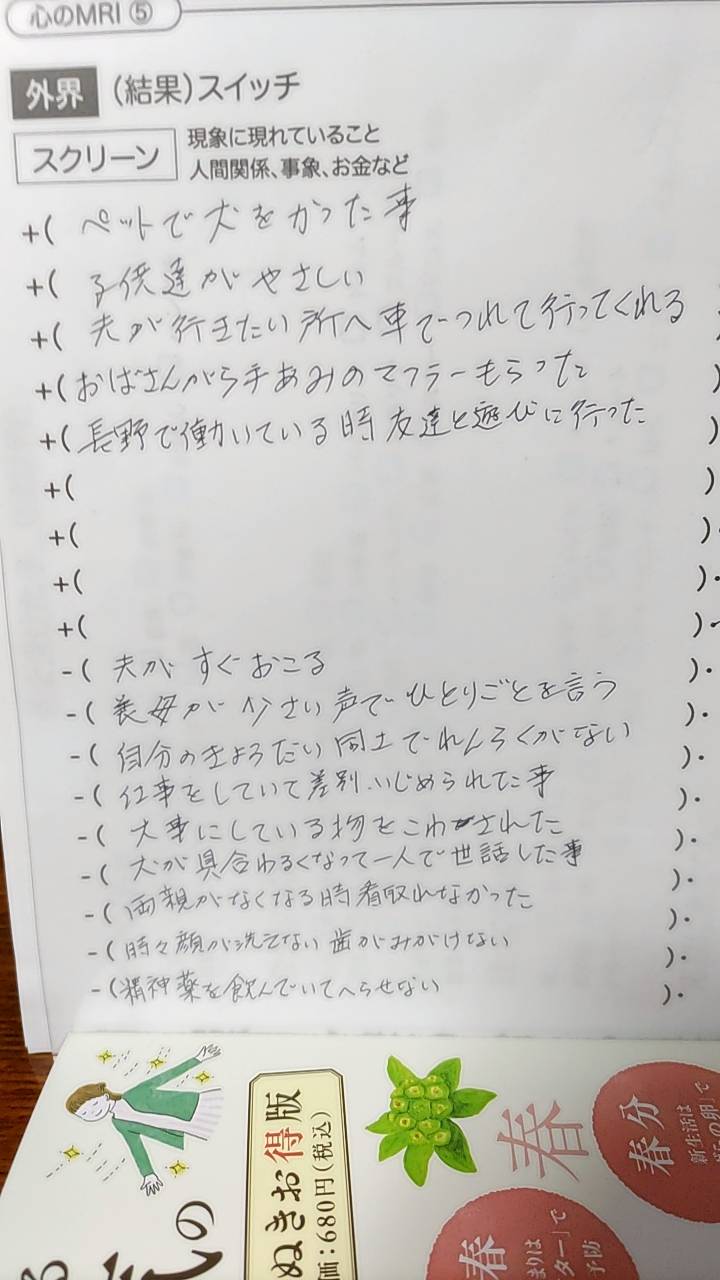 心のMRI ⑤
外界 (結果)スイッチ
スクリーン 現象に現れていること
人間関係、事象、お金など
+( ペットで犬をかった事
+( 子供達がやさしい
+( 夫が行きたい所へ車でつれて行ってくれる
+( おばさんがら手あみのマフラーもらった )
+( 長野で働いている時友達と遊びに行った )
+( )・
+( )・
+( )・
+( )・
-( 夫がすぐおこる )・
-( 養母が小さい声でひとりごとを言う )・
-( 自分のきょうだい同士でれんらくがない )・
-( 仕事をしていて差別、いじめられた事 )・
-( 大事にしている物をこわされた )・
-( 犬が具合わるくなって一人で世話した事 )・
-( 両親がなくなる時看取れなかった )・
-( 時々顔が洗えない 歯がみがけない )・
-( 精神薬を飲んでいてへらせない )・
ぬきお得版
価:680円(税込)
春
春分
新生活は
の卵」で
春
まりは
ター」で
予防
る
の